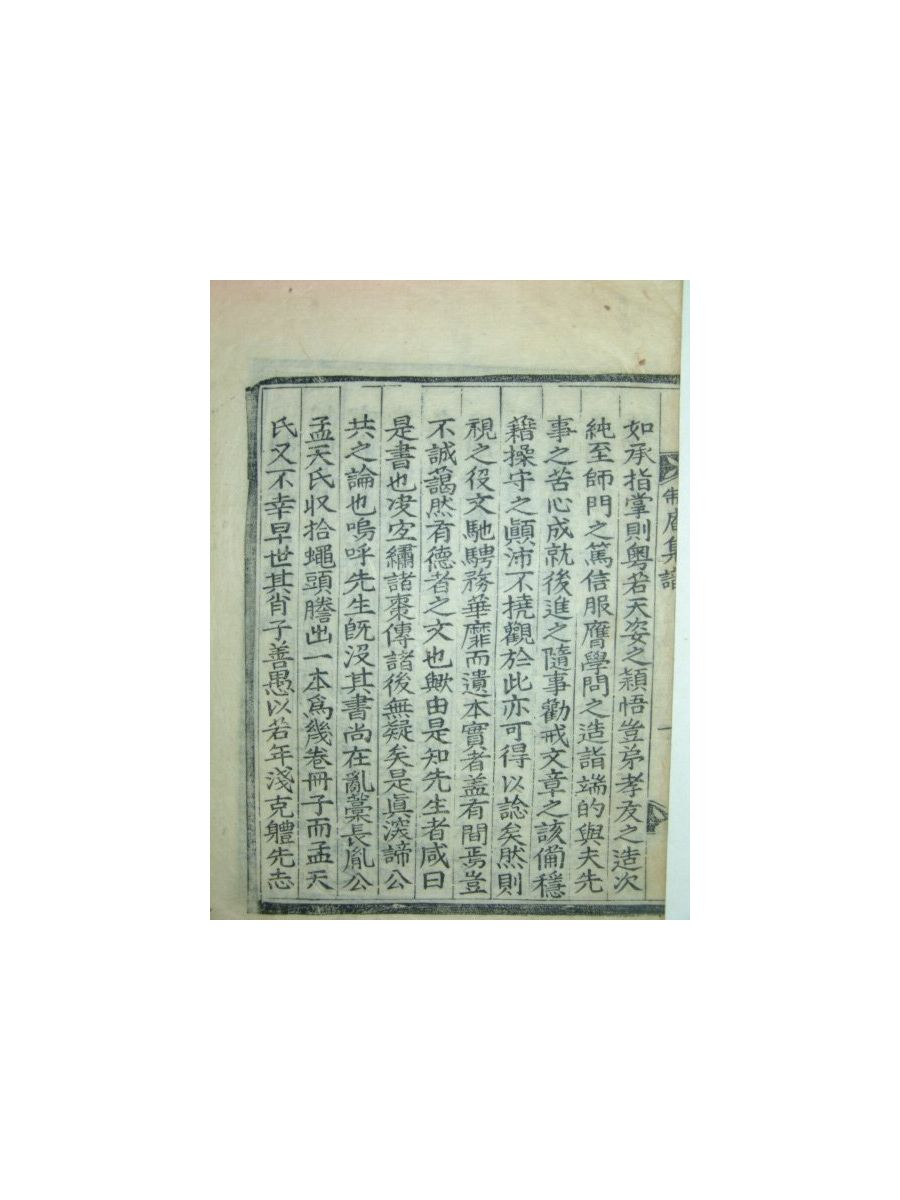 庵集 一
如承指掌則粵若天姿之穎悟豈弟孝友之造次
純至師門之篤信服膺學問之造詣端的與夫先
事之苦心成就後進之隨事勸戒文章之該備穩
籍操守之顚沛不撓觀於此亦可得以諗矣然則
視之役文馳騁務華靡而遺本實者盖有間焉豈
不誠藹然有德者之文也歟由是知先生者咸曰
是書也凌宜繡諸棗傳諸後無疑矣是眞深諦公
共之論也嗚呼先生旣沒其書尙在亂藁長胤公
孟天氏收拾蠅頭謄出一本爲幾卷冊子而孟天
氏又不幸早世其肖子善愚以若年淺克軆先志